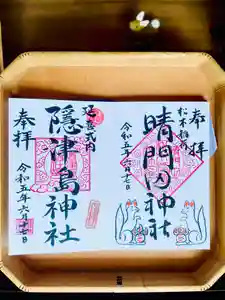 奉拝
松木稲荷
晴門田神社
令和五年六月十七日
延喜式内
隠津島神社
奉拝
令和五年六月十七日